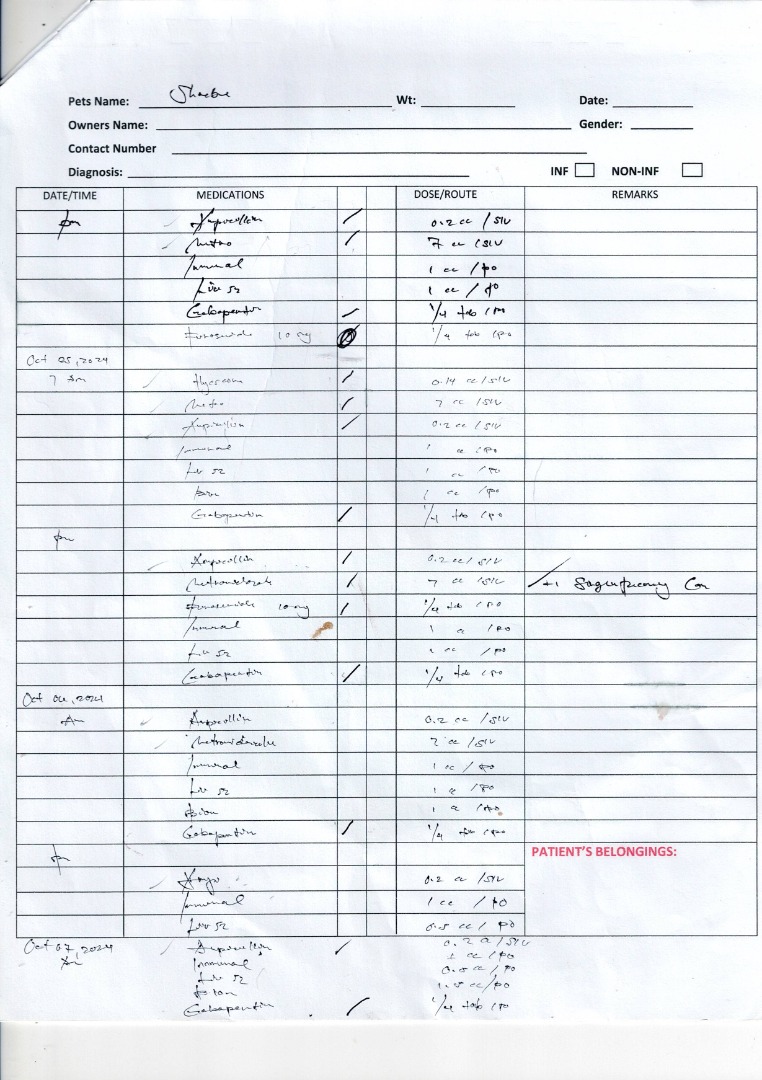 Pets Name: Wt: Date:
Owners Name: Gender:
Contact Number
Diagnosis: INF NON-INF
DATE/TIME MEDICATIONS DOSE/ROUTE REMARKS
pm Ampicillin / 0.2 cc / SIV
Metro / 7 cc / SIV
1 cc / PO
Liv 52 1 cc / PO
Gabapentin / 1/4 tab / PO
Furosemide 10 mg 1/4 tab / PO
Oct 05, 2024
7 am / 0.14 cc / SIV
Metro / 7 cc / SIV
Ampicillin / 0.2 cc / SIV
1 cc / PO
Liv 52 1 cc / PO
1 cc / PO
Gabapentin / 1/4 tab / PO
pm
Ampicillin / 0.2 cc / SIV
Metronidazole / 7 cc / SIV
Furosemide 10 mg / 1/4 tab / PO
1 cc / PO
Liv 52 1 cc / PO
Gabapentin / 1/4 tab / PO
Oct 06, 2024
Am Ampicillin 0.2 cc / SIV
Metronidazole 7 cc / SIV
1 cc / PO
Liv 52 1 cc / PO
1 cc / PO
Gabapentin / 1/4 tab / PO
PATIENT'S BELONGINGS:
pm
0.2 cc / SIV
1 cc / PO
Liv 52 0.5 cc / PO
Oct 07, 2024 Ampicillin / 0.2 cc / SIV
Am 1 cc / PO
Liv 52 0.5 cc / PO
cc / PO
Gabapentin / 1/4 tab / PO